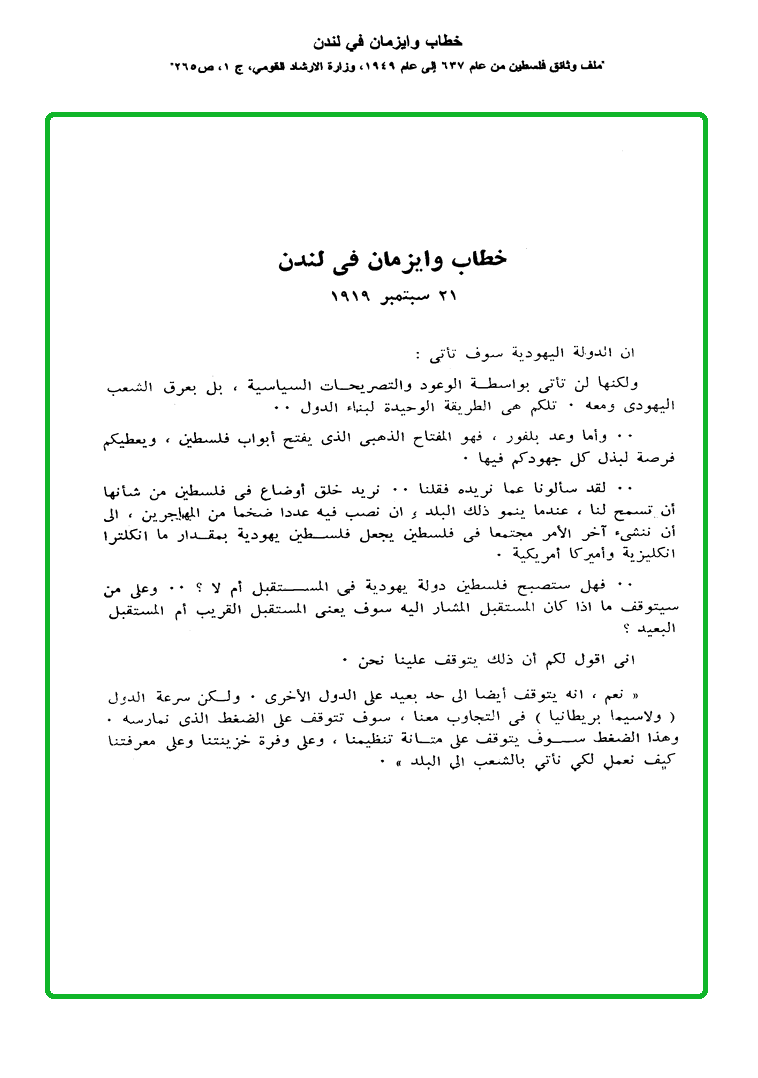 خطاب وايزمان في لندن
"ملف وثائق فلسطين من عام ٦٣٧ إلى عام ١٩٤٩، وزارة الارشاد القومي، ج ١، ص٢٦٥"
خطاب وايزمان فى لندن
٢١ سبتمبر ١٩١٩
ان الدولة اليهودية سوف تأتى :
ولكنها لن تأتى بواسطة الوعود والتصريحات السياسية ، بل بعرق الشعب
اليهودى ومعه ٠ تلكم هى الطريقة الوحيدة لبناء الدول ٠٠
٠٠ وأما وعد بلفور ، فهو المفتاح الذهبى الذى يفتح أبواب فلسطين ، ويعطيكم
فرصة لبذل كل جهودكم فيها ٠
٠٠ لقد سألونا عما نريده فقلنا ٠٠ نريد خلق أوضاع فى فلسطين من شأنها
أن تسمح لنا ، عندما ينمو ذلك البلد ، ان نصب فيه عددا ضخما من المهاجرين ، الى
أن ننشىء آخر الأمر مجتمعا فى فلسطين يجعل فلسطين يهودية بمقدار ما انكلترا
انكليزية وأميركا أمريكية ٠
٠٠ فهل ستصبح فلسطين دولة يهودية فى المستقبل أم لا ؟ ٠٠ وعلى من
سيتوقف ما اذا كان المستقبل المشار اليه سوف يعنى المستقبل القريب أم المستقبل
البعيد ؟
انى اقول لكم أن ذلك يتوقف علينا نحن ٠
« نعم ، انه يتوقف أيضا الى حد بعيد على الدول الأخرى ٠ ولكن سرعة الدول
( ولاسيما بريطانيا ) فى التجاوب معنا ، سوف تتوقف على الضغط الذى نمارسه ٠
وهذا الضغط سوف يتوقف على متانة تنظيمنا ، وعلى وفرة خزينتنا وعلى معرفتنا
كيف نعمل لكي نأتي بالشعب الى البلد » ٠